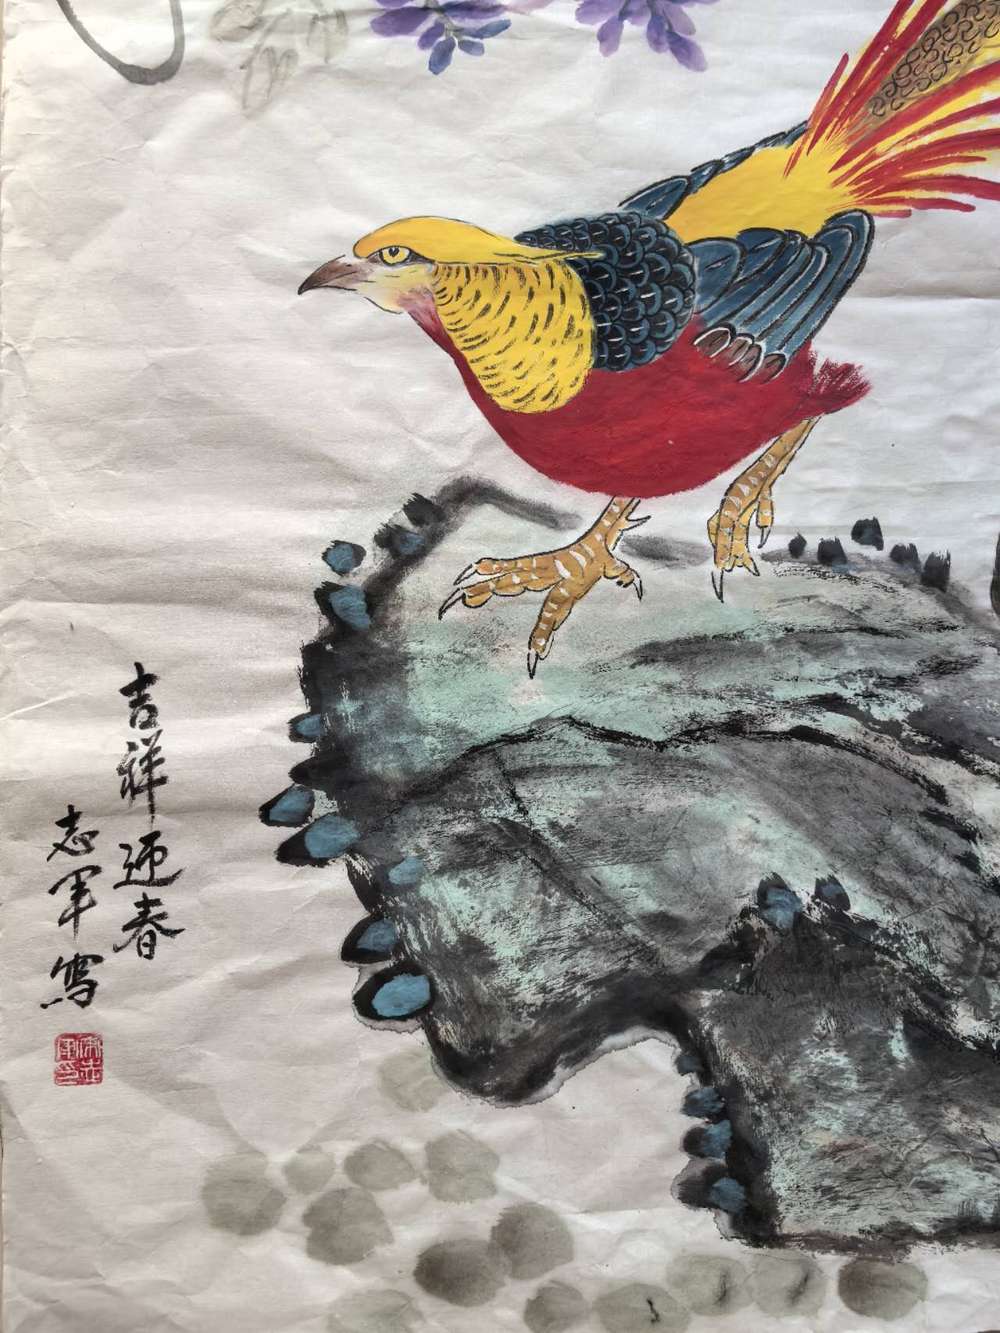 吉祥迎春
志军写